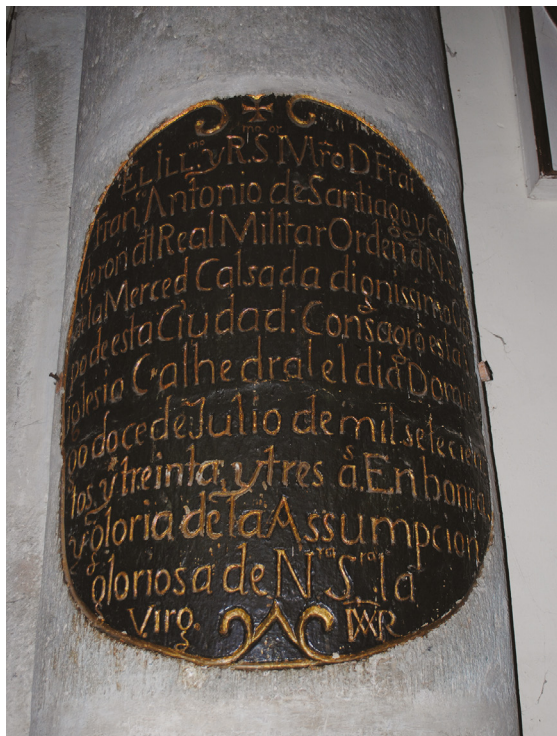 EL ILLmo. y Rmo. Sor Mro D Frai
Fran, Antonio de Santiago y Cal
deron dl Real Militar Orden d N. S
de la Merced Calsada dignissimo Obis
po de esta Ciudad: Consagro esta
Iglesia Cathedral el dia Domin
go doce de Julio de mil setecien
tos, y treinta, y tres as. En honra
y gloria de la Assumpcion
gloriosa de Nra Sra la
Virg. MAR